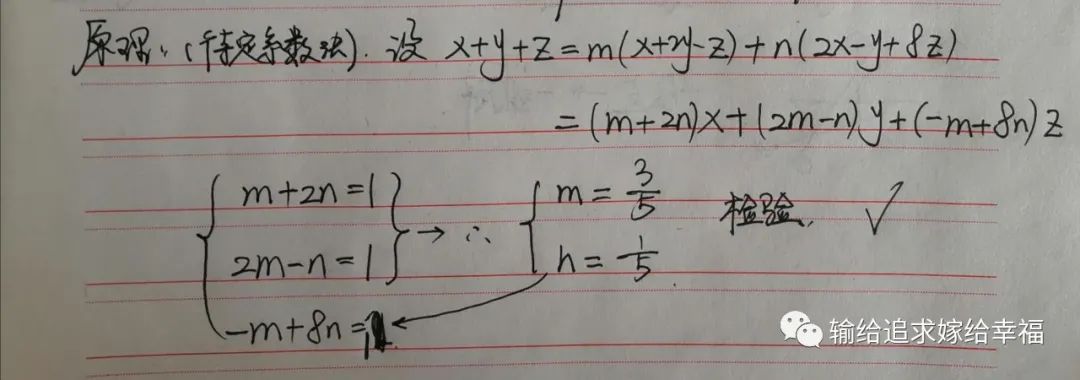 原理:(待定系数法). 设 x+y+z=m(x+2y-z)+n(2x-y+8z)
=(m+2n)x+(2m-n)y+(-m+8n)z
m+2n=1
2m-n=1
-m+8n=1
→ ∴
m=3/5
n=1/5
检验. ✓
输给追求嫁给幸福